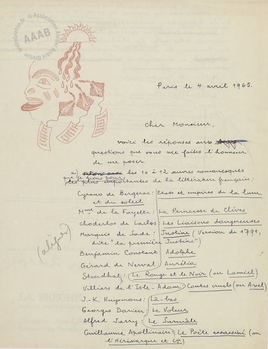 AAAB
Paris le 4 avril 1963.
Cher Monsieur,
voici les réponses aux
questions que vous me faites l'honneur
de me poser.
a les 10 à 12 œuvres romanesques
les plus importantes de la littérature française:
Cyrano de Bergerac: Etats et empires de la lune
et du soleil
Mme de La Fayette: La Princesse de Clèves
Choderlos de Laclos: Les Liaisons dangereuses
Marquis de Sade: Justine (Version de 1791,
dite "la première Justine")
Benjamin Constant: Adolphe
Gérard de Nerval: Aurélia
Stendhal: Le Rouge et le Noir (ou Lamiel)
Villiers de l'Isle-Adam: Contes cruels (ou Axel)
J.-K. Huysmans: Là-bas
Georges Darien: Le Voleur
Alfred Jarry: Le Surmâle
Guillaume Apollinaire: Le Poète assassiné (ou
l'Hérésiarque et Cie)